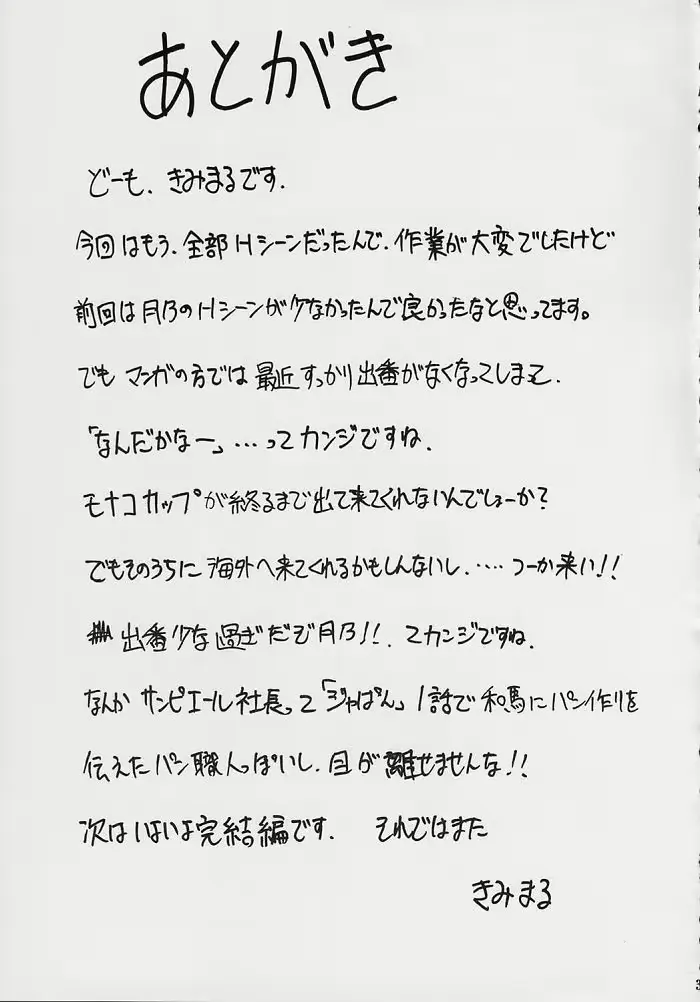 あとがき
どーも、きみまるです.
今回はもう、全部Hシーンだったんで、作業が大変でしたけど
前回は月乃のHシーンが少なかったんで良かったなと思ってます。
でもマンガの方では最近すっかり出番がなくなってしまって、
「なんだかなー」…ってカンジですね.
モナコカップが終るまで出て来てくれないんでしょーか?
でもそのうちに海外へ来てくれるかもしんないし、…‥つーか来い!!
出番少な過ぎだぞ月乃!!、てカンジですね、
なんかサンピエール社長って「ジャぱん」1話で和馬にパン作りを
伝えたパン職人っぽいし、目が離せませんな!!
次はいよいよ完結編です. それではまた
きみまる
3